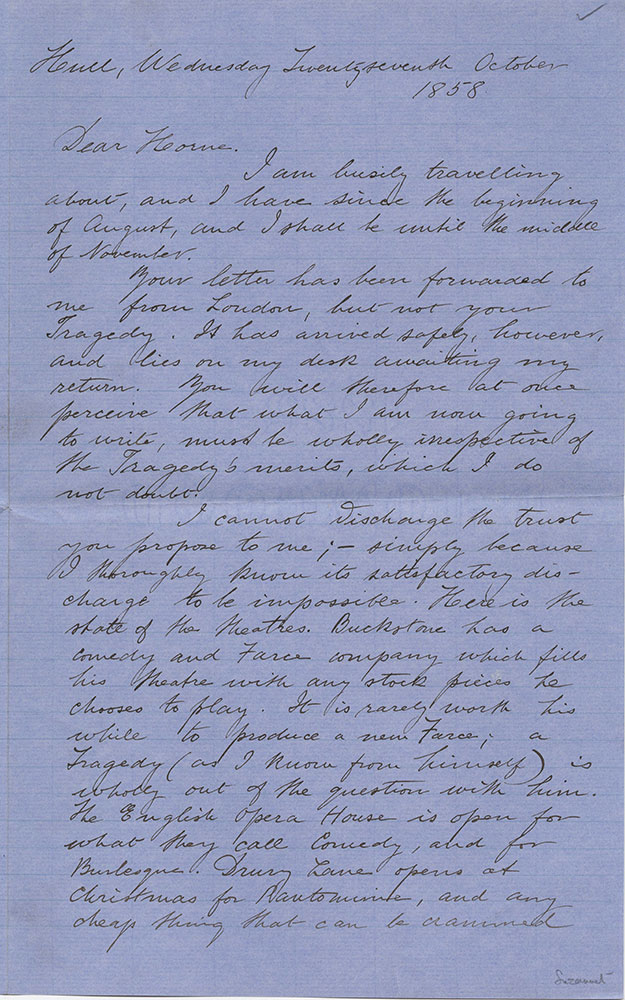 Hull, Wednesday Twentyseventh October
1858
Dear Horne.
I am busily travelling
about, and I have since the beginning
of August, and I shall be until the middle
of November.
Your letter has been forwarded to
me from London, but not your
Tragedy. It has arrived safely, however,
and lies on my desk awaiting my
return. You will therefore at once
perceive that what I am now going
to write, must be wholly irrespective of
the Tragedy's merits, which I do
not doubt.
I cannot discharge the trust
you propose to me;- simply because
I thoroughly know its satisfactory dis-
charge to be impossible. Here is the
state of the theatres. Buckstone has a
comedy and Farce company which fills
his theatre with any stock pieces he
chooses to play. It is rarely worth his
while to produce a new Farce; a
Tragedy (as I know from himself) is
wholly out of the question with him.
The English Opera House is open for
what they call Comedy, and for
Burlesque. Drury Lane opens at
Christmas for Pantomime, and any
cheap thing that can be crammed